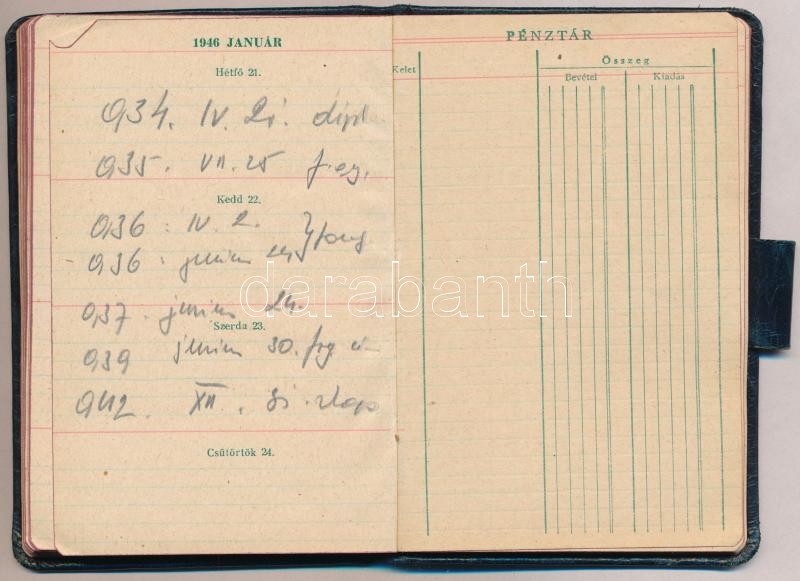 1946 JANUÁR
Hétfő 21.
934. IV. 21. dipl
935. VII. 25
Kedd 22.
936. IV. 2.
- 936. június
937. június 24.
Szerda 23.
939 június 30.
942. XII.
Csütörtök 24.
PÉNZTÁR
Kelet
Összeg
Bevétel
Kiadás
darabanth